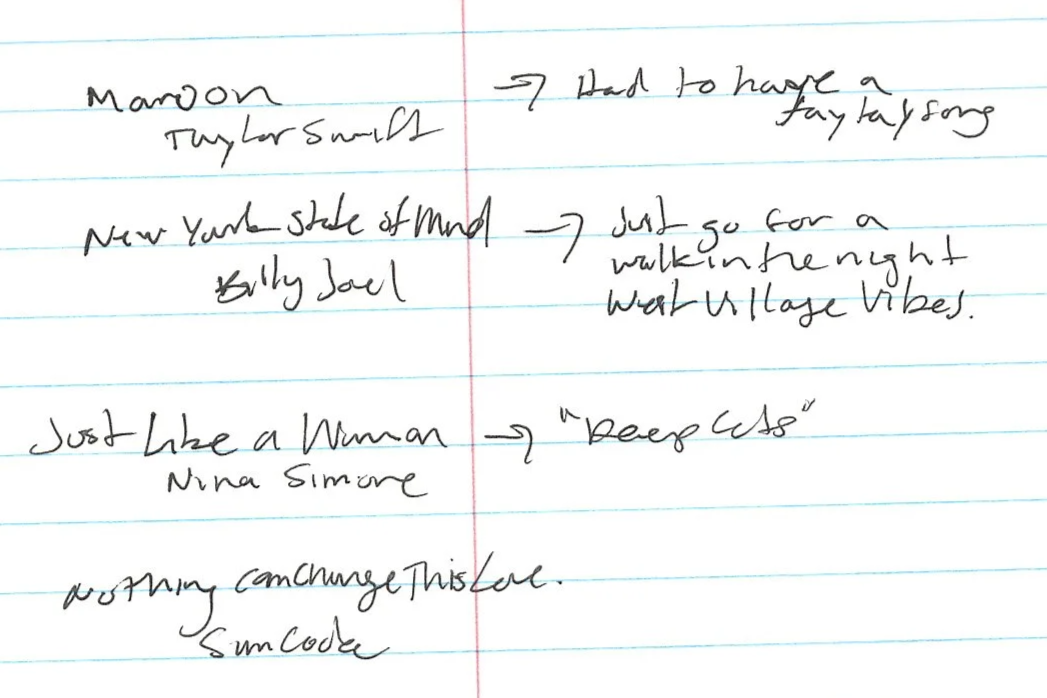 Maroon → Had to have a
Taylor Swift taytay song
New York State of Mind → Just go for a
walk in the night
Billy Joel West Village Vibes.
Just Like a Woman → "Deep Cuts"
Nina Simone
Nothing Can Change This Love.
Sam Cooke